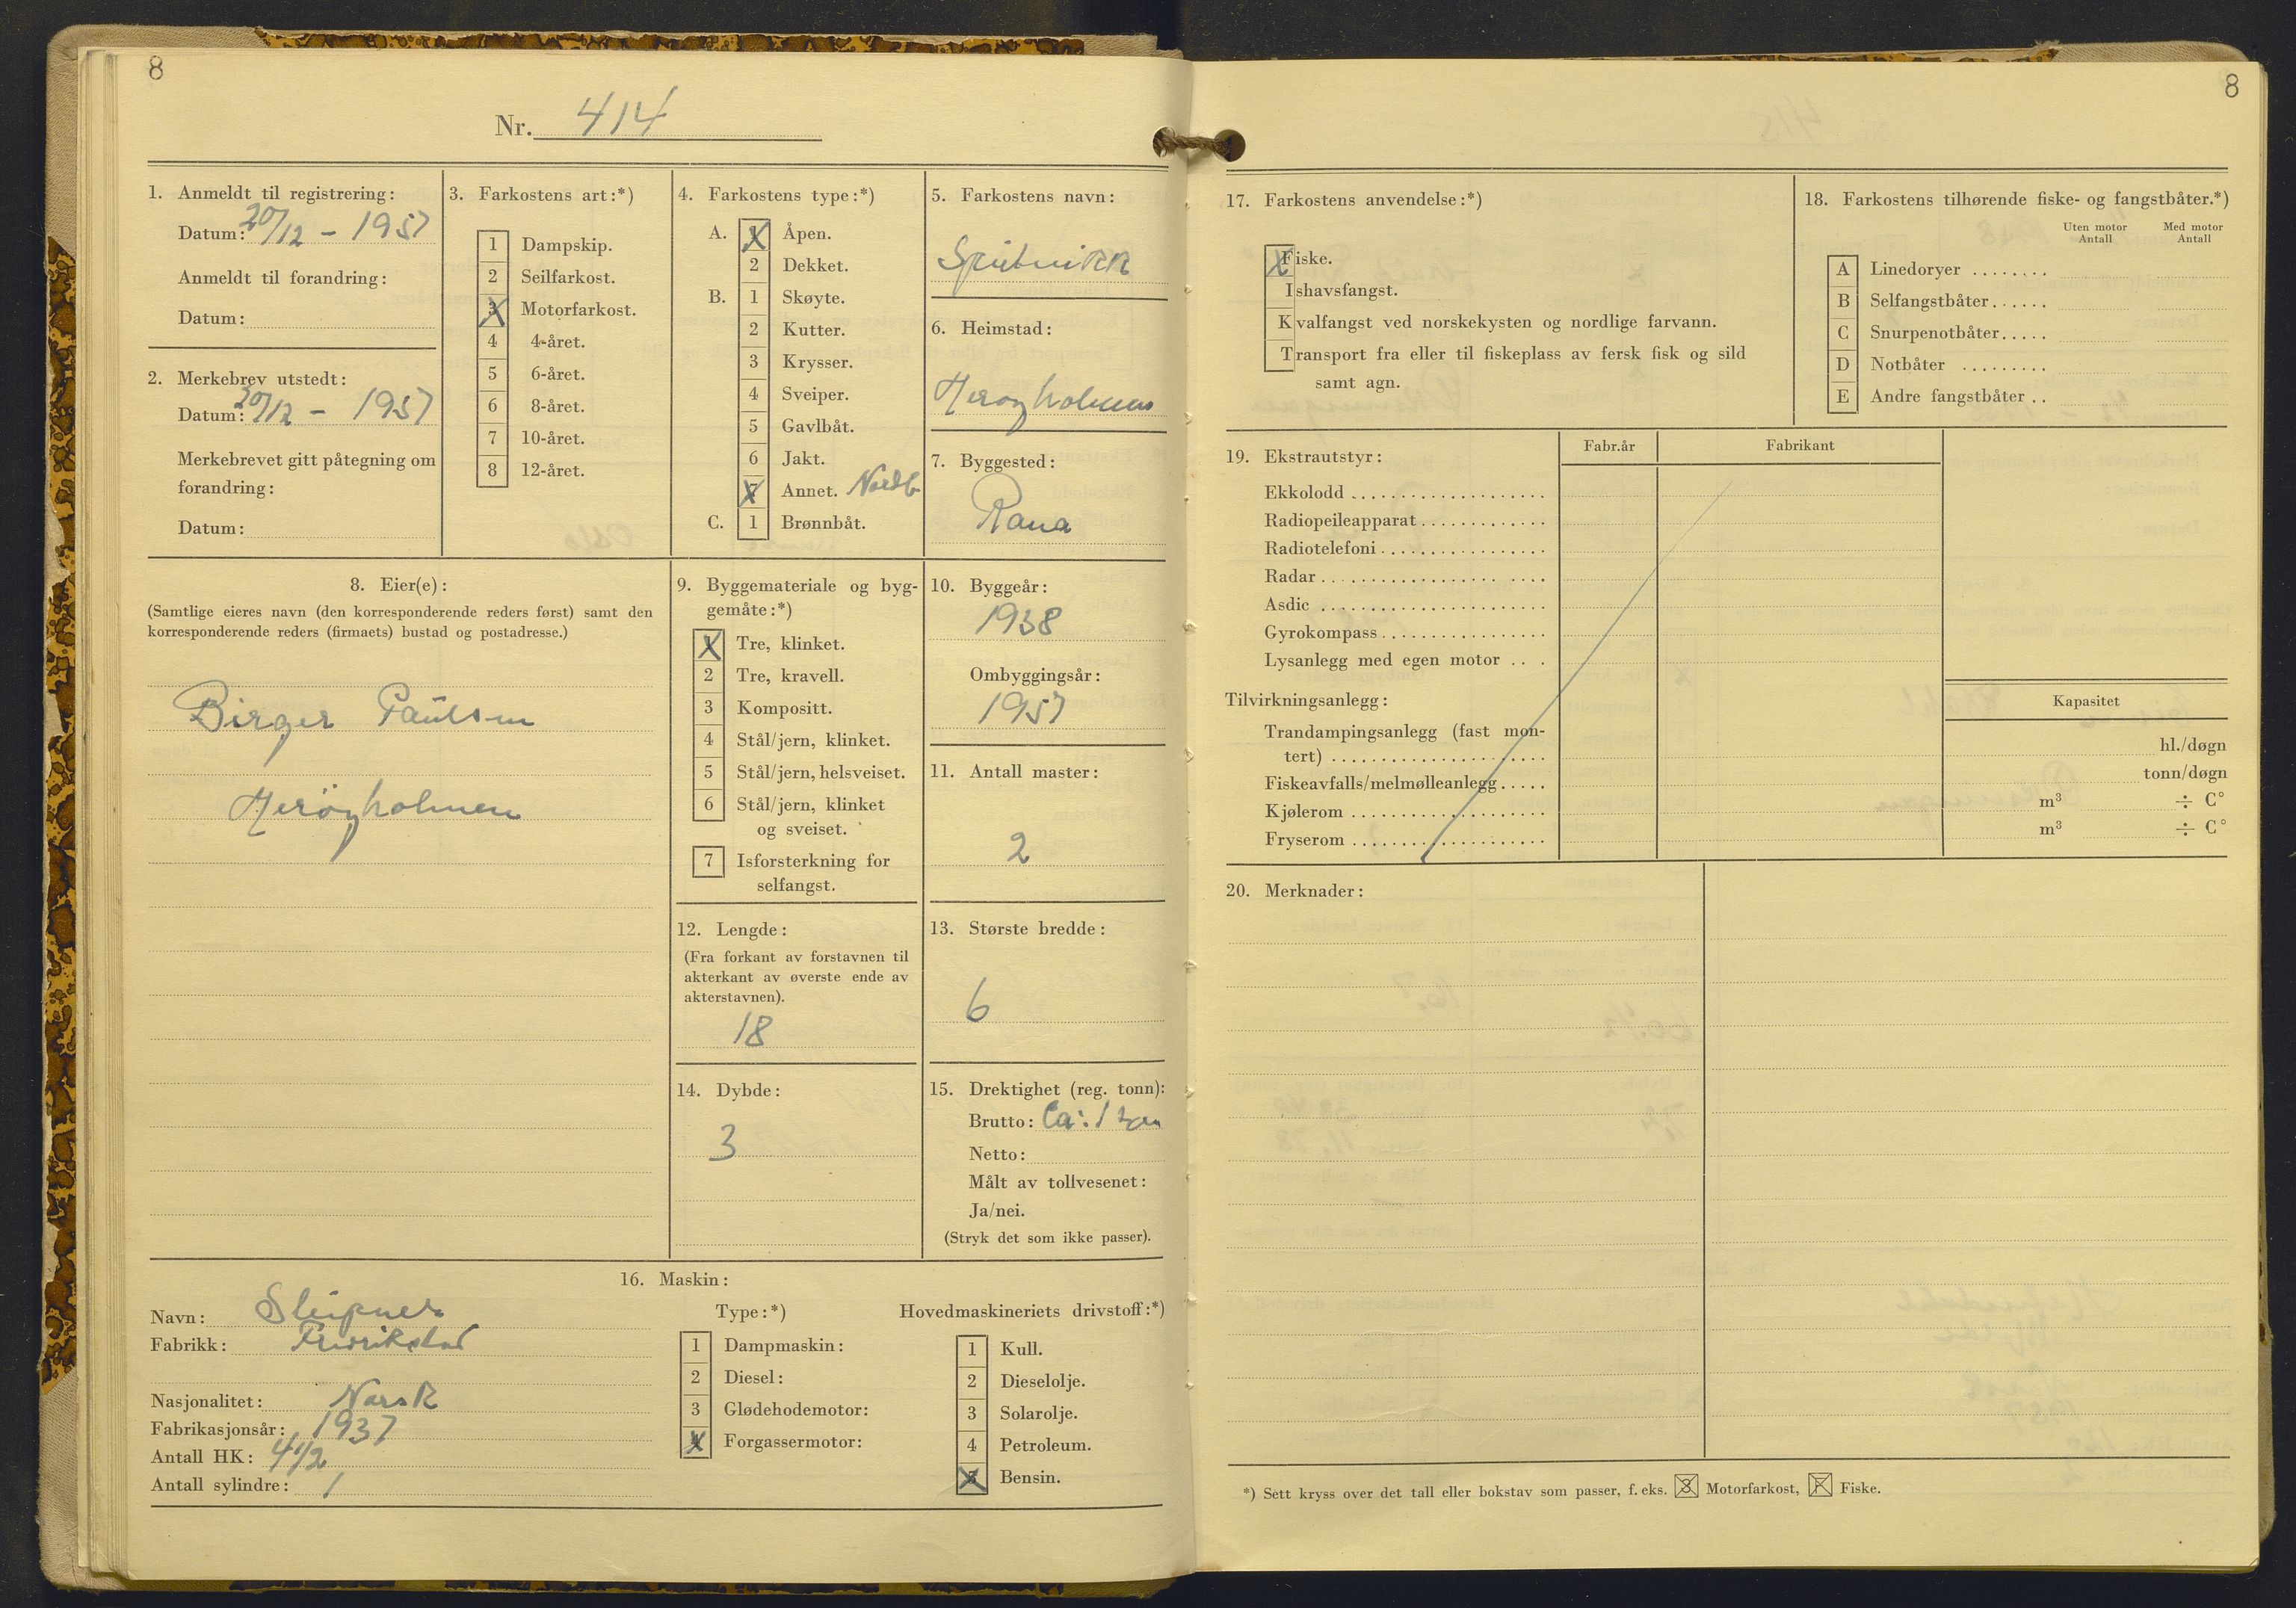 8
Nr. 414
1. Anmeldt til registrering:
Datum: 20/12 - 1957
Anmeldt til forandring:
Datum:
2. Merkebrev utstedt:
Datum: 20/12 - 1957
Merkebrevet gitt påtegning om
forandring:
Datum:
3. Farkostens art:*)
1 Dampskip.
2 Seilfarkost.
3 Motorfarkost.
4 4-året.
5 6-året.
6 8-året.
7 10-året.
8 12-året.
4. Farkostens type:*)
A. 1 Åpen.
2 Dekket.
B. 1 Skøyte.
2 Kutter.
3 Krysser.
4 Sveiper.
5 Gavlbåt.
6 Jakt.
7 Annet. Nordb
C. 1 Brønnbåt.
5. Farkostens navn:
Sputnikk
6. Heimstad:
Herøyholmen
7. Byggested:
Rana
8. Eier(e):
(Samtlige eieres navn (den korresponderende reders først) samt den
korresponderende reders (firmaets) bustad og postadresse.)
Birger Paulsen
Herøyholmen
9. Byggemateriale og byg-
gemåte:*)
1 Tre, klinket.
2 Tre, kravell.
3 Kompositt.
4 Stål/jern, klinket.
5 Stål/jern, helsveiset.
6 Stål/jern, klinket
og sveiset.
7 Isforsterkning for
selfangst.
10. Byggeår:
1938
Ombyggingsår:
1957
11. Antall master:
2
12. Lengde:
(Fra forkant av forstavnen til
akterkant av øverste ende av
akterstavnen).
18
13. Største bredde:
6
14. Dybde:
3
15. Drektighet (reg. tonn):
Brutto: Ca: 1 ton
Netto:
Målt av tollvesenet:
Ja/nei.
(Stryk det som ikke passer).
16. Maskin:
Navn: Sleipner
Fabrikk: Fredrikstad
Nasjonalitet: Norsk
Fabrikasjonsår: 1937
Antall HK: 4 1/2
Antall sylindre: 1
Type:*)
1 Dampmaskin:
2 Diesel:
3 Glødehodemotor:
4 Forgassermotor:
Hovedmaskineriets drivstoff:*)
1 Kull.
2 Dieselolje.
3 Solarolje.
4 Petroleum.
5 Bensin.
8
17. Farkostens anvendelse:*)
Fiske.
Ishavsfangst.
Kvalfangst ved norskekysten og nordlige farvann.
Transport fra eller til fiskeplass av fersk fisk og sild
samt agn.
18. Farkostens tilhørende fiske- og fangstbåter.*)
Uten motor Med motor
Antall Antall
A Linedoryer ........
B Selfangstbåter......
C Snurpenotbåter.....
D Notbåter .........
E Andre fangstbåter ..
19. Ekstrautstyr:
Fabr.år Fabrikant
Ekkolodd ....................
Radiopeileapparat.............
Radiotelefoni.................
Radar.......................
Asdic .......................
Gyrokompass.................
Lysanlegg med egen motor ....
Tilvirkningsanlegg:
Kapasitet
Trandampingsanlegg (fast mon-
tert) ...................... hl./døgn
Fiskeavfalls/melmølleanlegg..... tonn/døgn
Kjølerom .................... m³ ÷ C°
Fryserom .................... m³ ÷ C°
20. Merknader:
*) Sett kryss over det tall eller bokstav som passer, f. eks. 3 Motorfarkost, F Fiske.